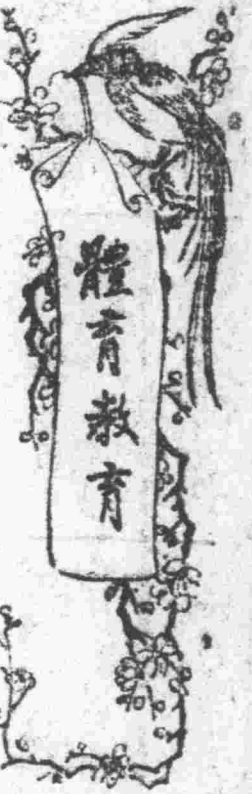 體育教育